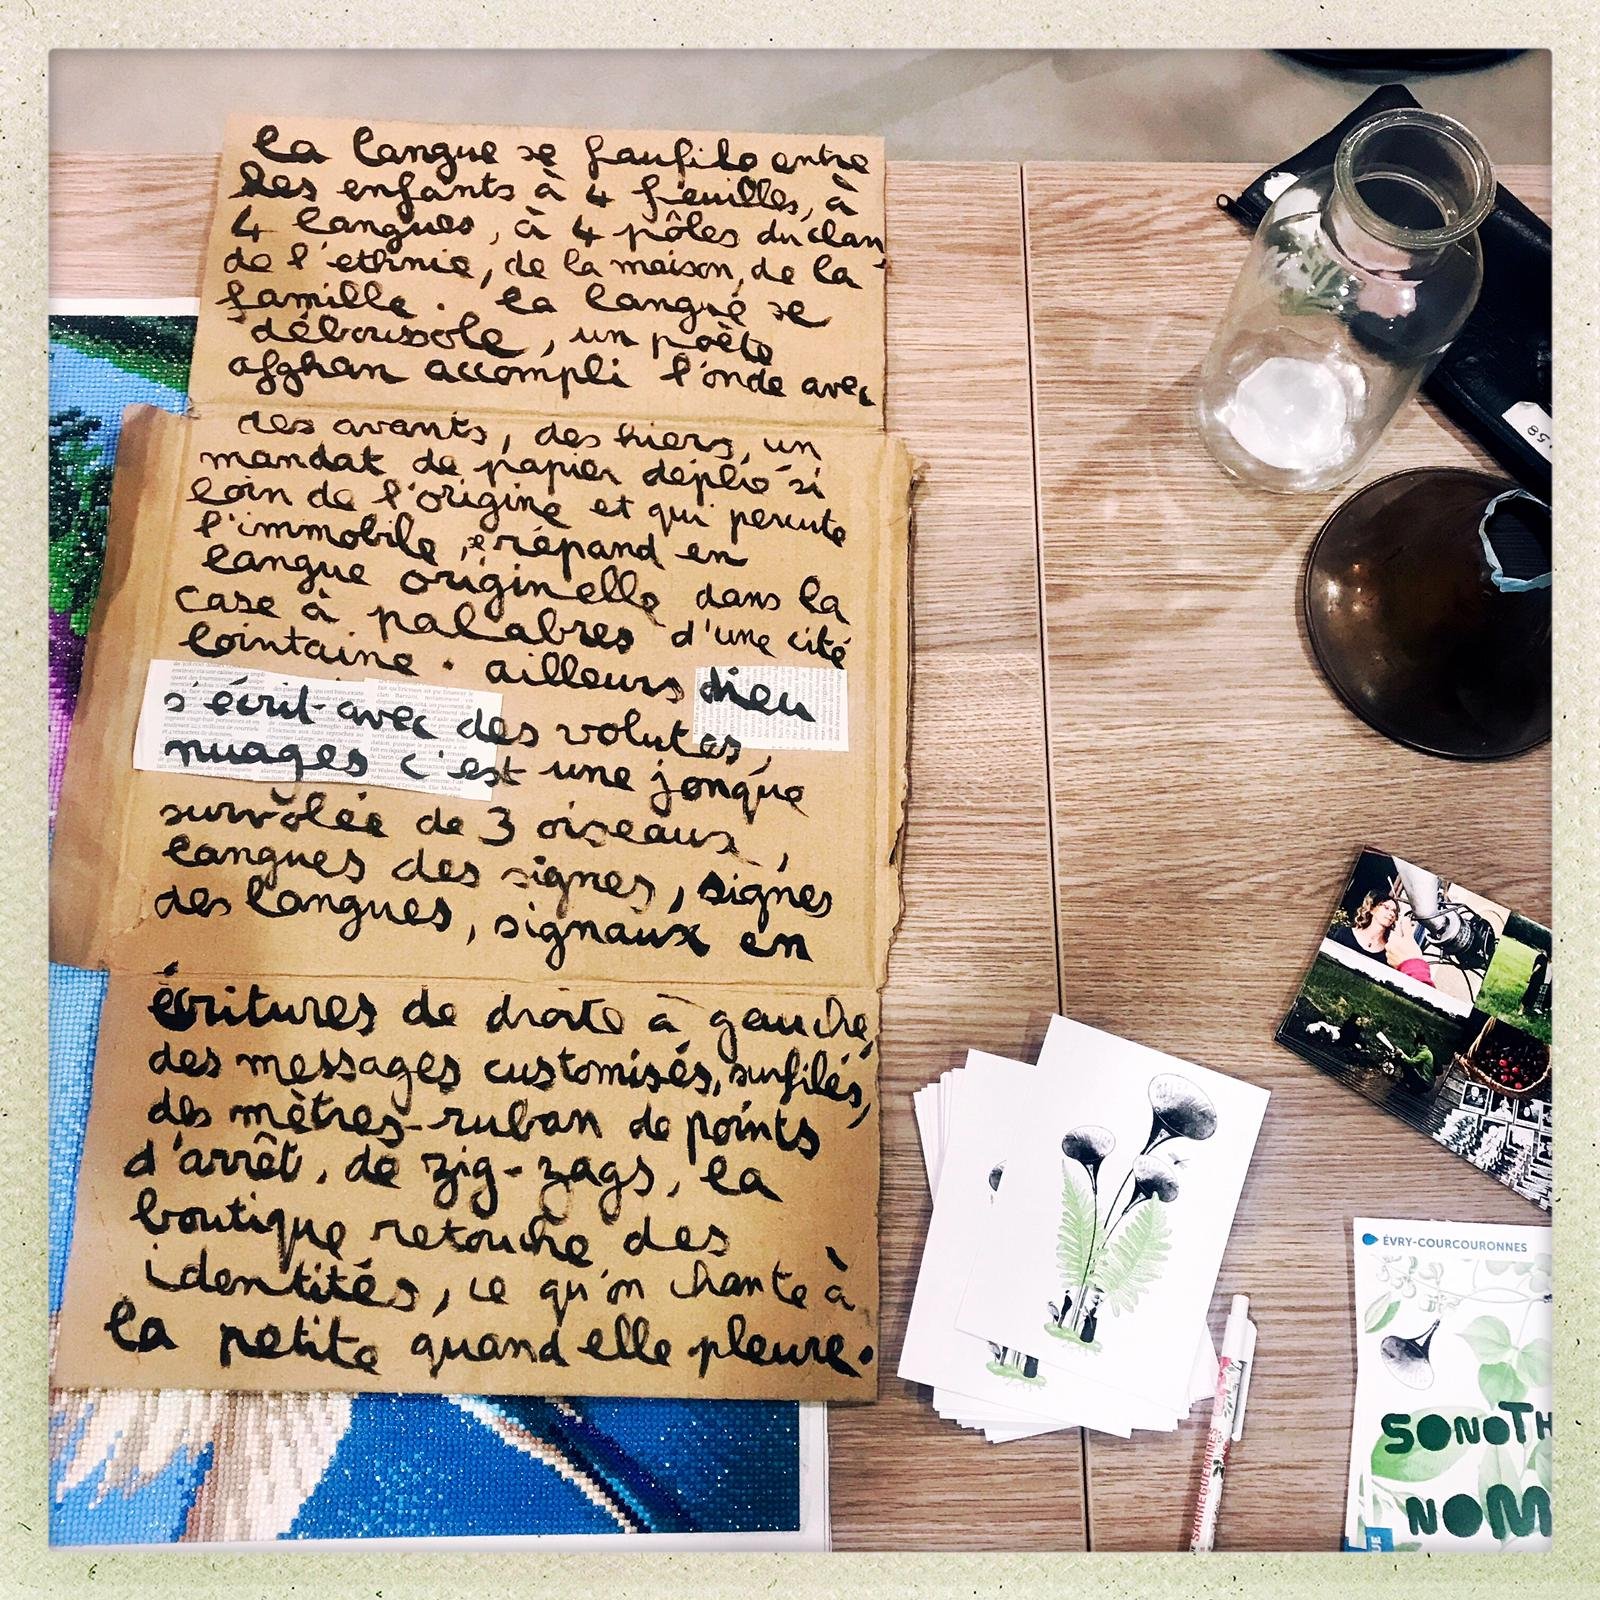 la langue se faufile entre
les enfants à 4 feuilles, à
4 langues, à 4 pôles du clan
de l'ethnie, de la maison, de la
famille. la langue se
déboussole, un poète
afghan accompli l'onde avec
des avants, des hiers, un
mandat de papier déplié si
loin de l'origine et qui percute
l'immobile, répand en
langue originelle dans la
case à palabres d'une cité
lointaine. ailleurs dieu
s'écrit avec des volutes,
nuages c'est une jonque
survolée de 3 oiseaux,
langues des signes, signes
des langues, signaux en
écritures de droite à gauche,
des messages customisés, surfilés,
des mètres-ruban de points
d'arrêt, de zig-zags, la
boutique retouche des
identités, ce qu'on chante à
la petite quand elle pleure.
ÉVRY-COURCOURONNES
SONOTH
NOM
SARREGUEMINES